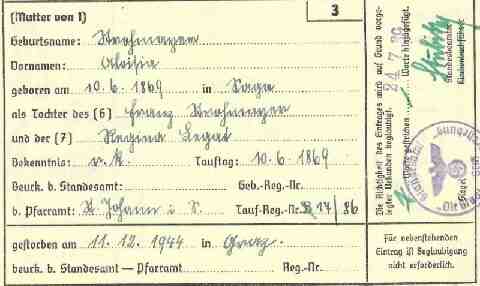 (Mutter von 1)
3
Geburtsname: Strohmayer
Vornamen: Aloisia
geboren am 10.6.1869 in Saga
als Tochter des (6) Franz Strohmayer
und der (7) Regina Legat
Bekenntnis: r. k. Tauftag: 10.6.1869
Beurk. b. Standesamt: Geb.-Reg.-Nr.
b. Pfarramt: St. Johann i. S. Tauf-Reg.-Nr. 17/86
gestorben am 11.12.1944 in Graz.
beurk. b. Standesamt — Pfarramt Reg.-Nr.
Die Richtigkeit des Eintrages wird auf Grund vorge-
legter Urkunden beglaubigt. 24.7.39
Worte gestrichen Worte hinzugefügt.
Standesbeamter
Kirchenbuchführer
Für nebenstehenden
Eintrag ist Beglaubigung
nicht erforderlich.